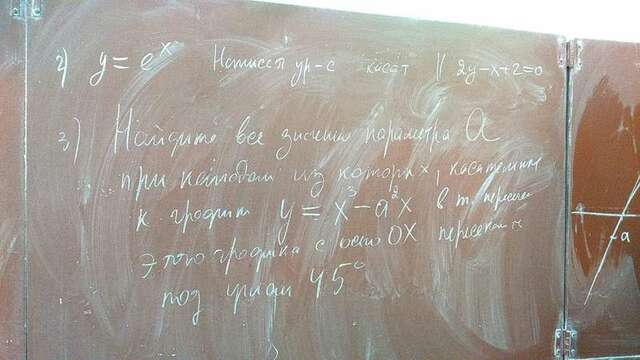 2) y = e^x Написать ур-е касат || 2y-x+2=0
3) Найдите все значения параметра a
при каждом из которых, касательные
к графику y = x^3 - a^2x в т. пересеч
этого графика с осью OX пересекают
под углом 45°
-a